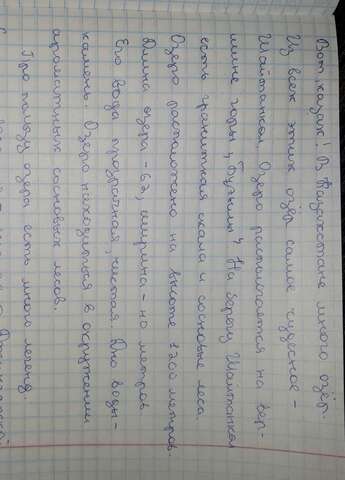 Вот казак! В Казахстане много озёр.
Из всех этих озёр самое чудесное -
Шайтанкол. Озеро располагается на вер-
шине горы На берегу Шайтанкол
есть гранитная скала и сосновые леса.
Озеро расположено на высоте 1200 метров.
Длина озера - 62, ширина - но метров.
Его вода прозрачная, чистая. Дно воды -
камень. Озеро находиться в окружении
ароматных сосновых лесов.
Про пользу озера есть много легенд